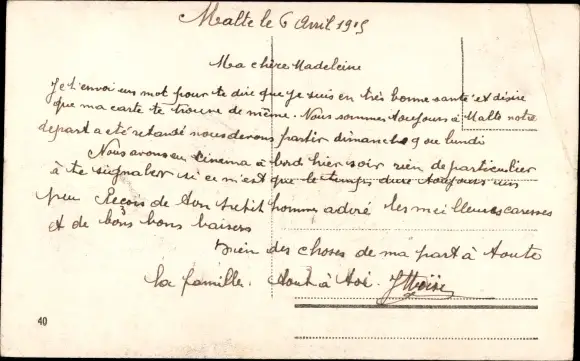 Malte le 6 Avril 1915
Ma chère Madeleine
Je t'envoi un mot pour te dire que je suis en très bonne santé et désire
que ma carte te trouve de même. Nous sommes toujours à Malte notre
départ a été retardé nous devons partir dimanche ou lundi
Nous avons eu cinema à bord hier soir rien de particulier
à te signaler si ce n'est que le temps dure toujours un
peu Reçois de ton petit homme adoré les meilleures caresses
et de bons bons baisers
Bien des choses de ma part à toute
la famille. tout à toi.
40